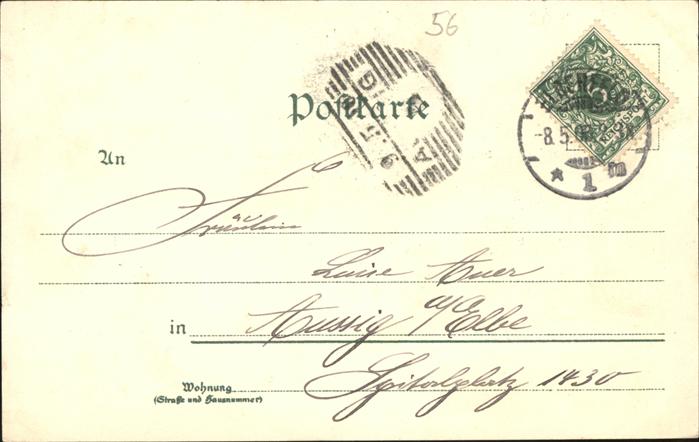 56
Postkarte
-8.5.
* 1 m
An
Fräulein
Luise Auer
in Aussig a/Elbe
Wohnung
(Straße und Hausnummer)
Spitalplatz 1430